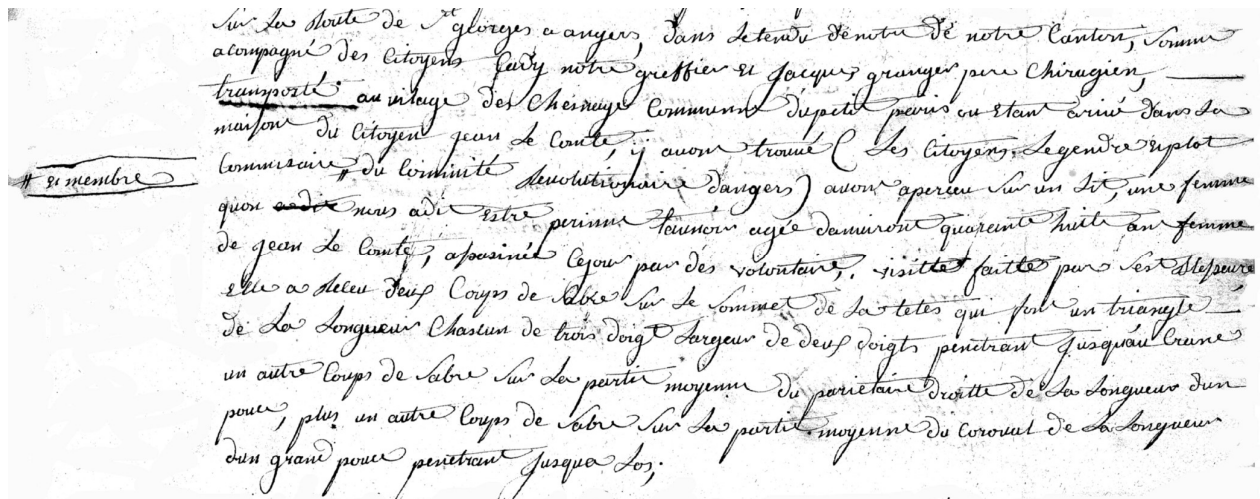 Sur La Route de St georges a angers, dans Letendu denotre de notre Canton, Somme
acompagné des Citoyens Cady notre greffier Et Jacques granger pere Chirugien,
transporté au vilage des Chesnaye Commune dupetit paris ou Etant arivé dans La
maison du Citoyen jean Le Comte, y avons trouvé ( Les Citoyens Legendre Explot
# et membre
Commisaire # du Comminité Revolutionaire dangers ) avons aperceu Sur un Lit, une femme
quon nous adit Estre perinne agée damiront quarante huite an femme
de jean Le Comte, apasinée Cejour par des volontaire, visitte faitte par
Elle a Releu deux Coups de Sabre Sur Le Sommet de La tetes qui fon un triangle
de La Longueur Chascun de trois doigt Largeur de deux doigts penetrant Jusquau Crane
un autre Coups de Sabre Sur La partie moyenne du parietaire droitte de La Longueur dun
pouce, plus un autre Coups de Sabre Sur La partie moyenne du Coronal de La Longueur
dun grand pouce penetrant Jusqua Los,